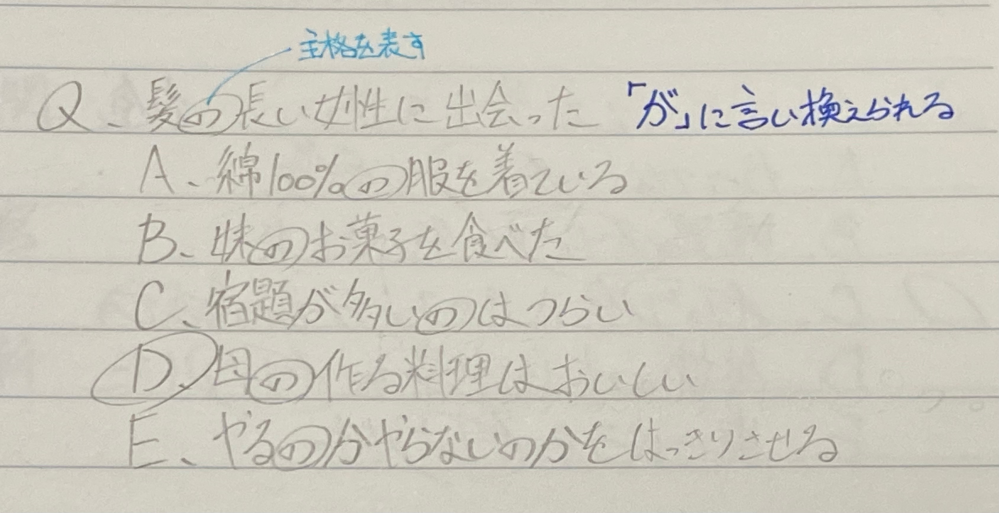 主格を表す
Q、髪の長い女性に出会った 「が」に言い換えられる
A、綿100%の服を着ている
B、妹のお菓子を食べた
C、宿題が多いのはつらい
D、母の作る料理はおいしい
E、やるのかやらないのかをはっきりさせる